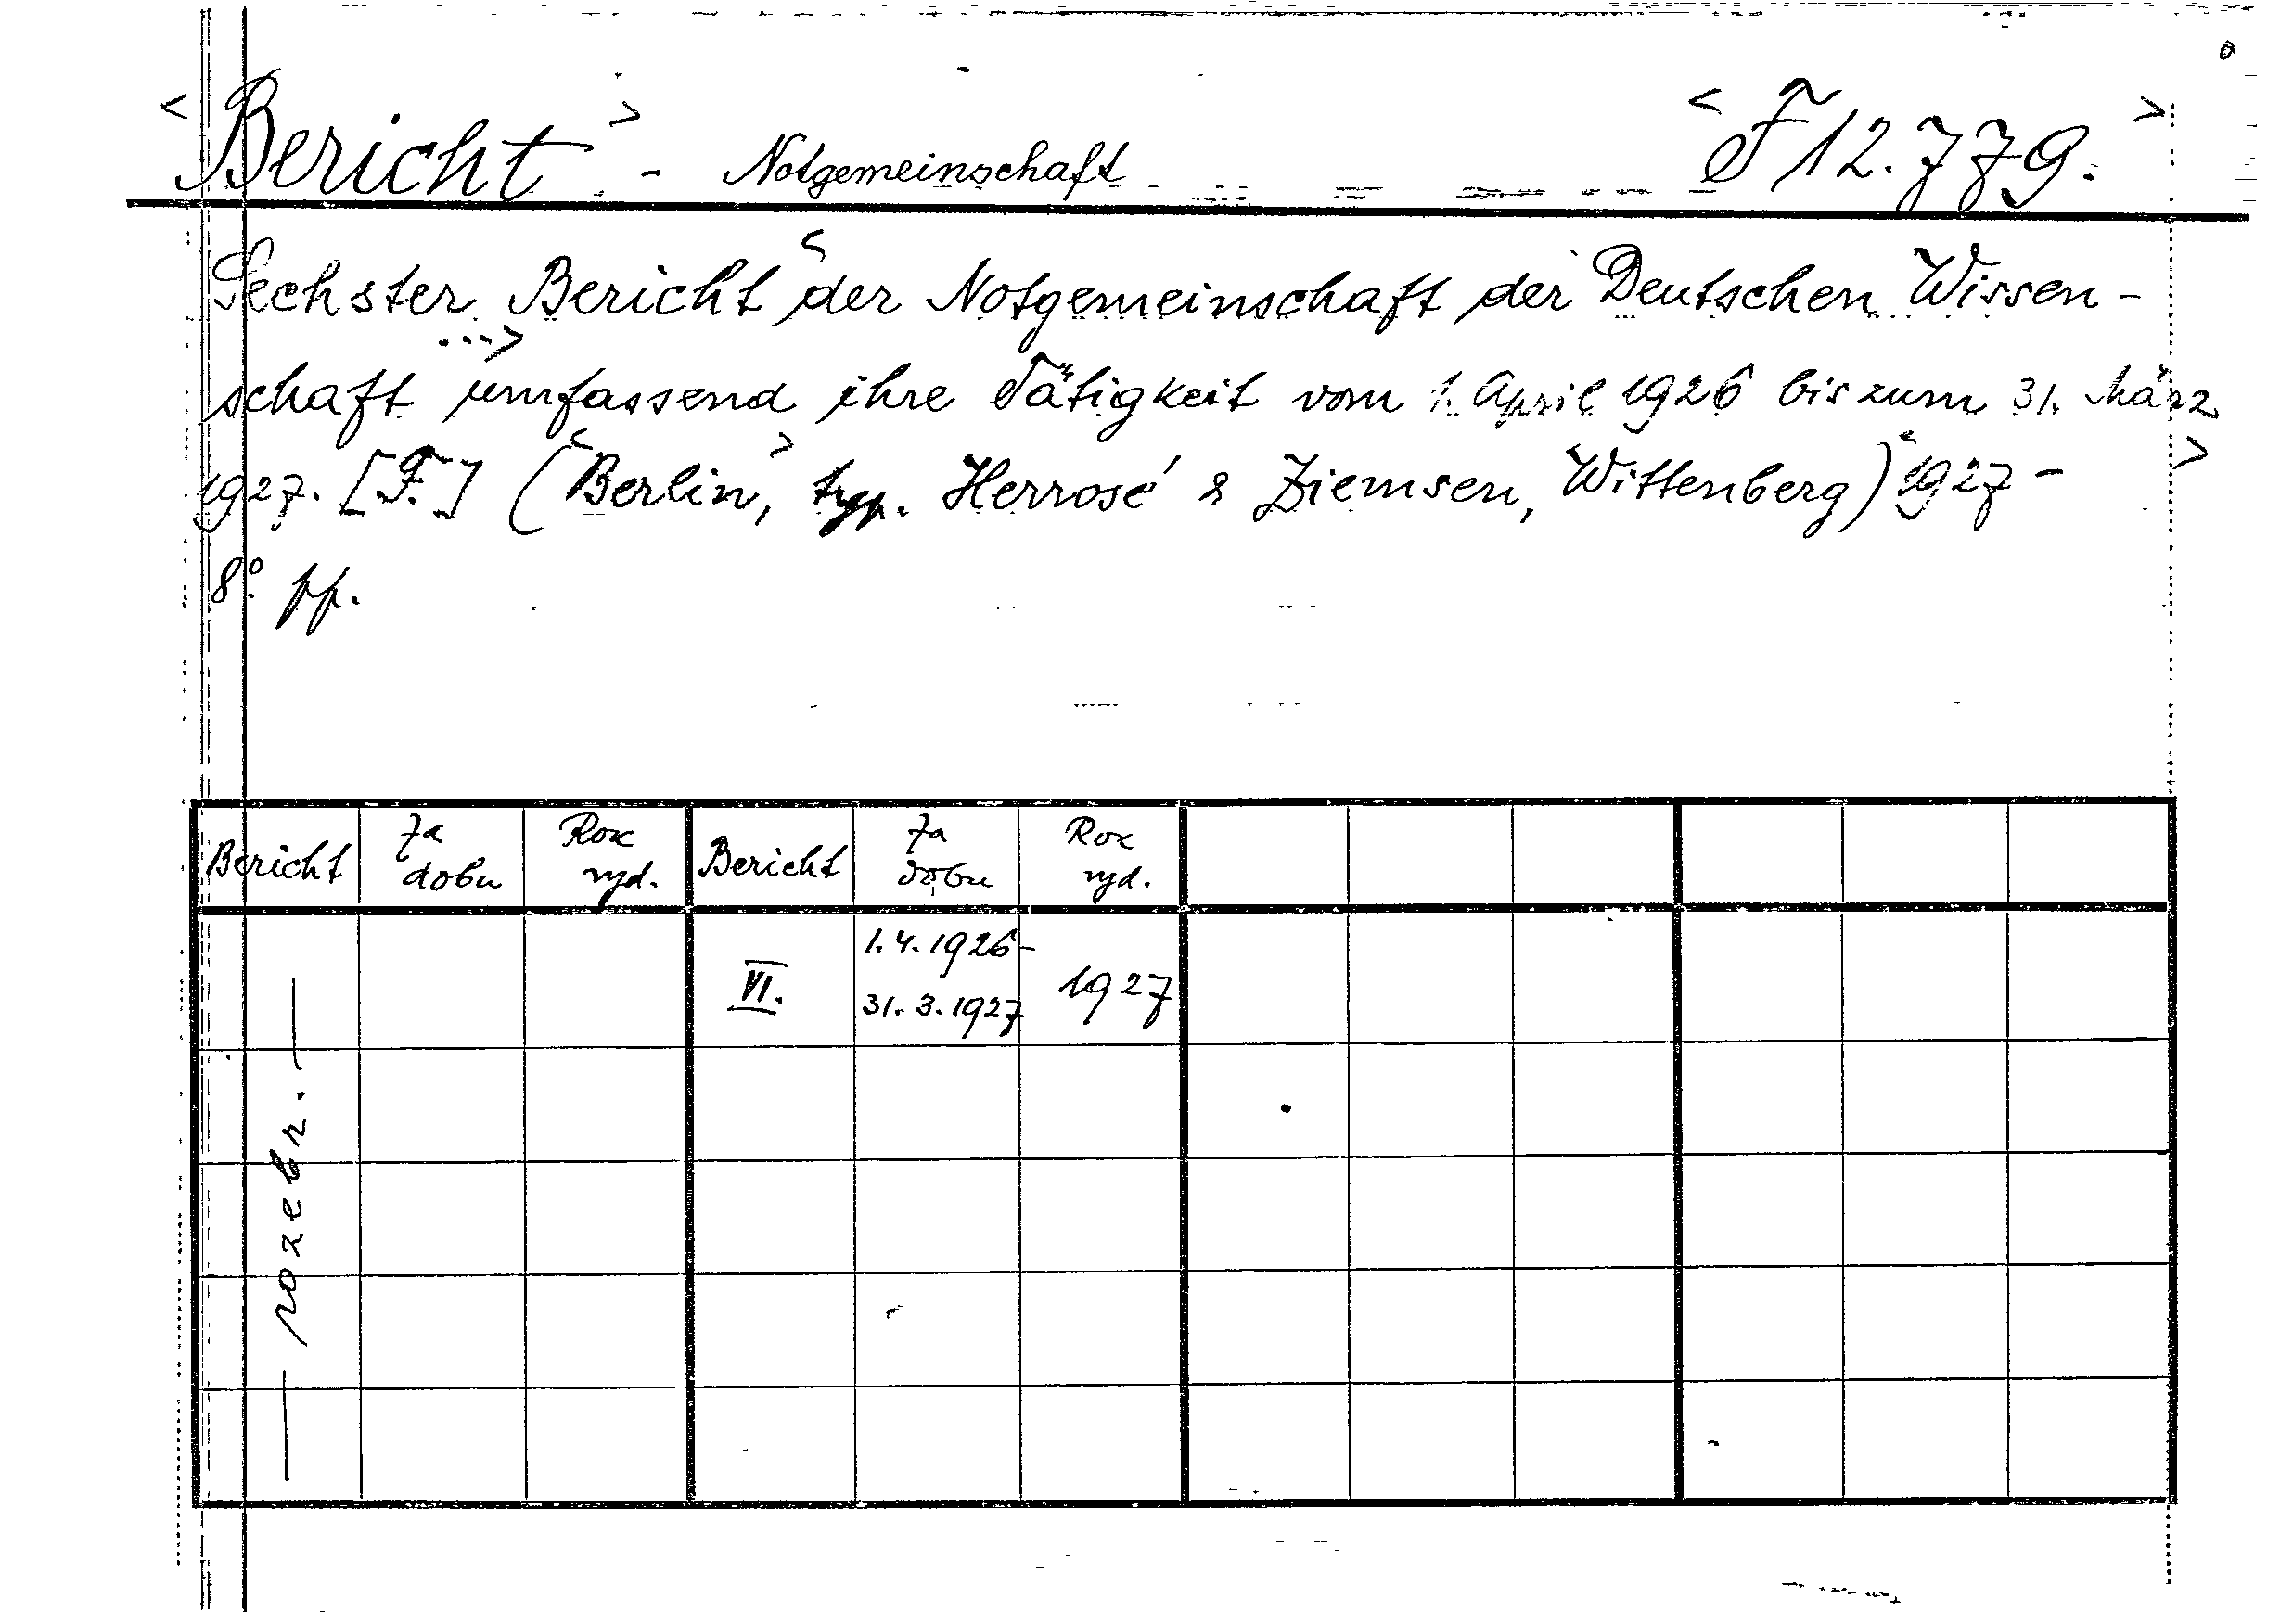 < Bericht > - Notgemeinschaft < F 12.779. >
Sechster Bericht < der Notgemeinschaft der Deutschen Wissen-
...>
schaft umfassend ihre Tätigkeit vom 1. April 1926 bis zum 31. März
1927. [F.] (< Berlin, > typ. Herrosé & Ziemsen, Wittenberg) < 1927 - >
8° pp.
Bericht Za dobu Rok vyd. Bericht Za dobu Rok vyd.
VI. 1.4.1926- 31.3.1927 1927
— rozebr. —